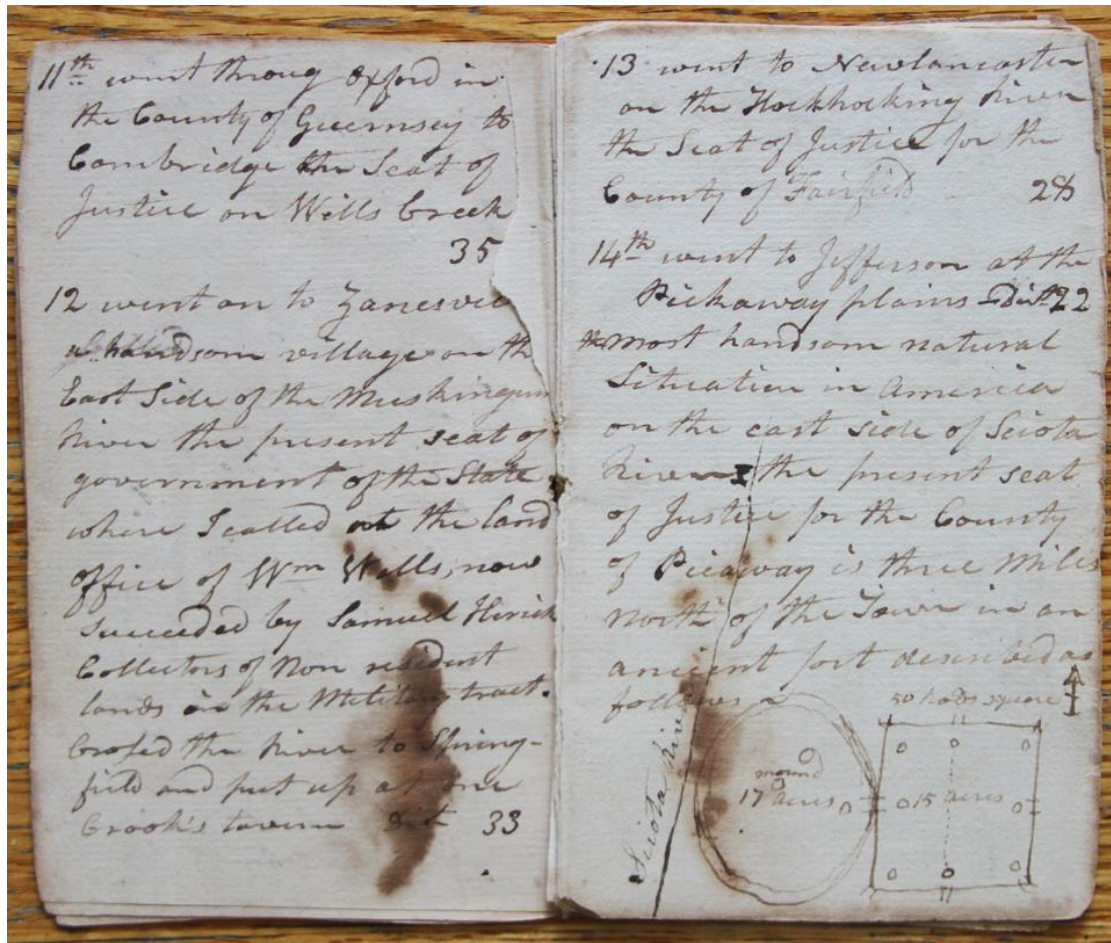 11th went throug Oxford in
the County of Guernsey to
Cambridge the Seat of
Justice on Wills Creek
35
12 went on to Zanesvil
a handsom village on the
East Side of the Muskingum
River the present seat of
government of the State
where I called at the land
office of Wm Wells, now
succeeded by Samuel Herick
Collectors of Non resident
lands in the Military tract.
Crossed the River to Spring-
field and put up at one
Crook's tavern Dist 33
13 went to Newlancaster
on the Hockhocking River
the Seat of Justice for the
County of Fairfield 28
14th went to Jefferson at the
Pickaway plains Dist 22
the most handsom natural
Situation in America
on the east side of Sciota
River the present seat
of Justice for the County
of Picaway is three Miles
North of the Town in an
ancient fort described as
follows
50 Rods square
mound
17 acres
15 acres
Sciota River